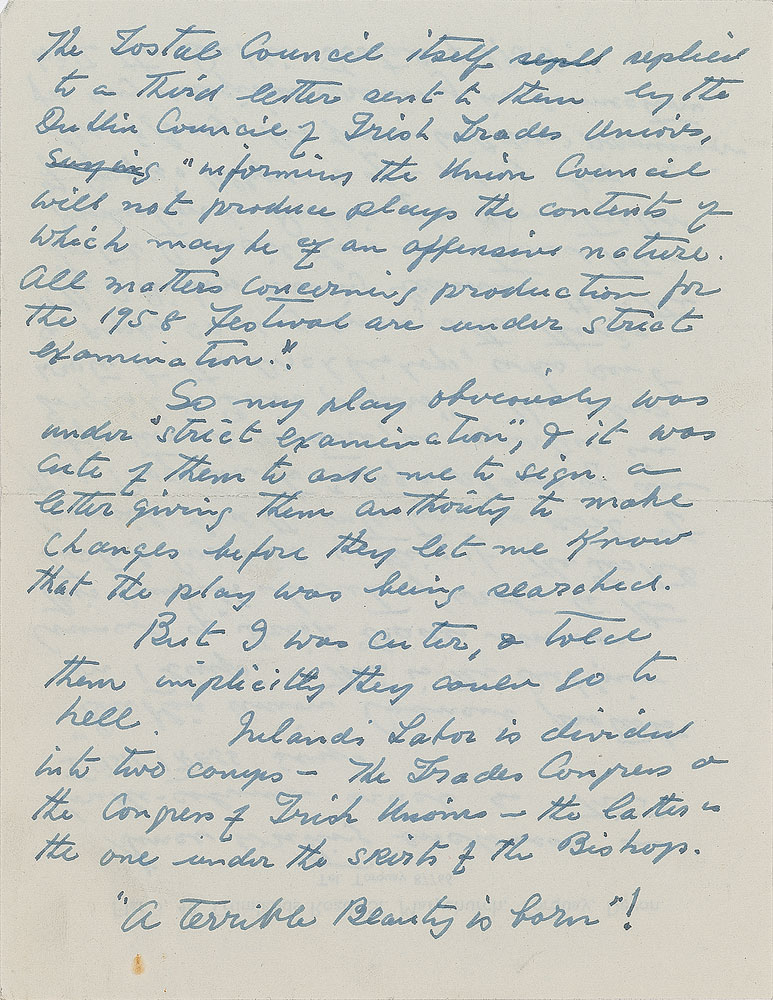 The Tostal Council itself repll replied
to a third letter sent to them by the
Dublin Council of Irish Trades Unions,
saying "informing the Union Council
will not produce plays the contents of
which may be of an offensive nature.
All matters concerning production for
the 1958 Festival are under strict
examination."
So my play obviously was
under "strict examination", & it was
cute of them to ask me to sign a
letter giving them authority to make
changes before they let me know
that the play was being searched.
But I was cuter, & told
them implicitly they could go to
hell. Ireland's Labor is divided
into two camps — The Trades Congress &
the Congress of Irish Unions — the latter is
the one under the skirts of the Bishops.
"A Terrible Beauty is born"!